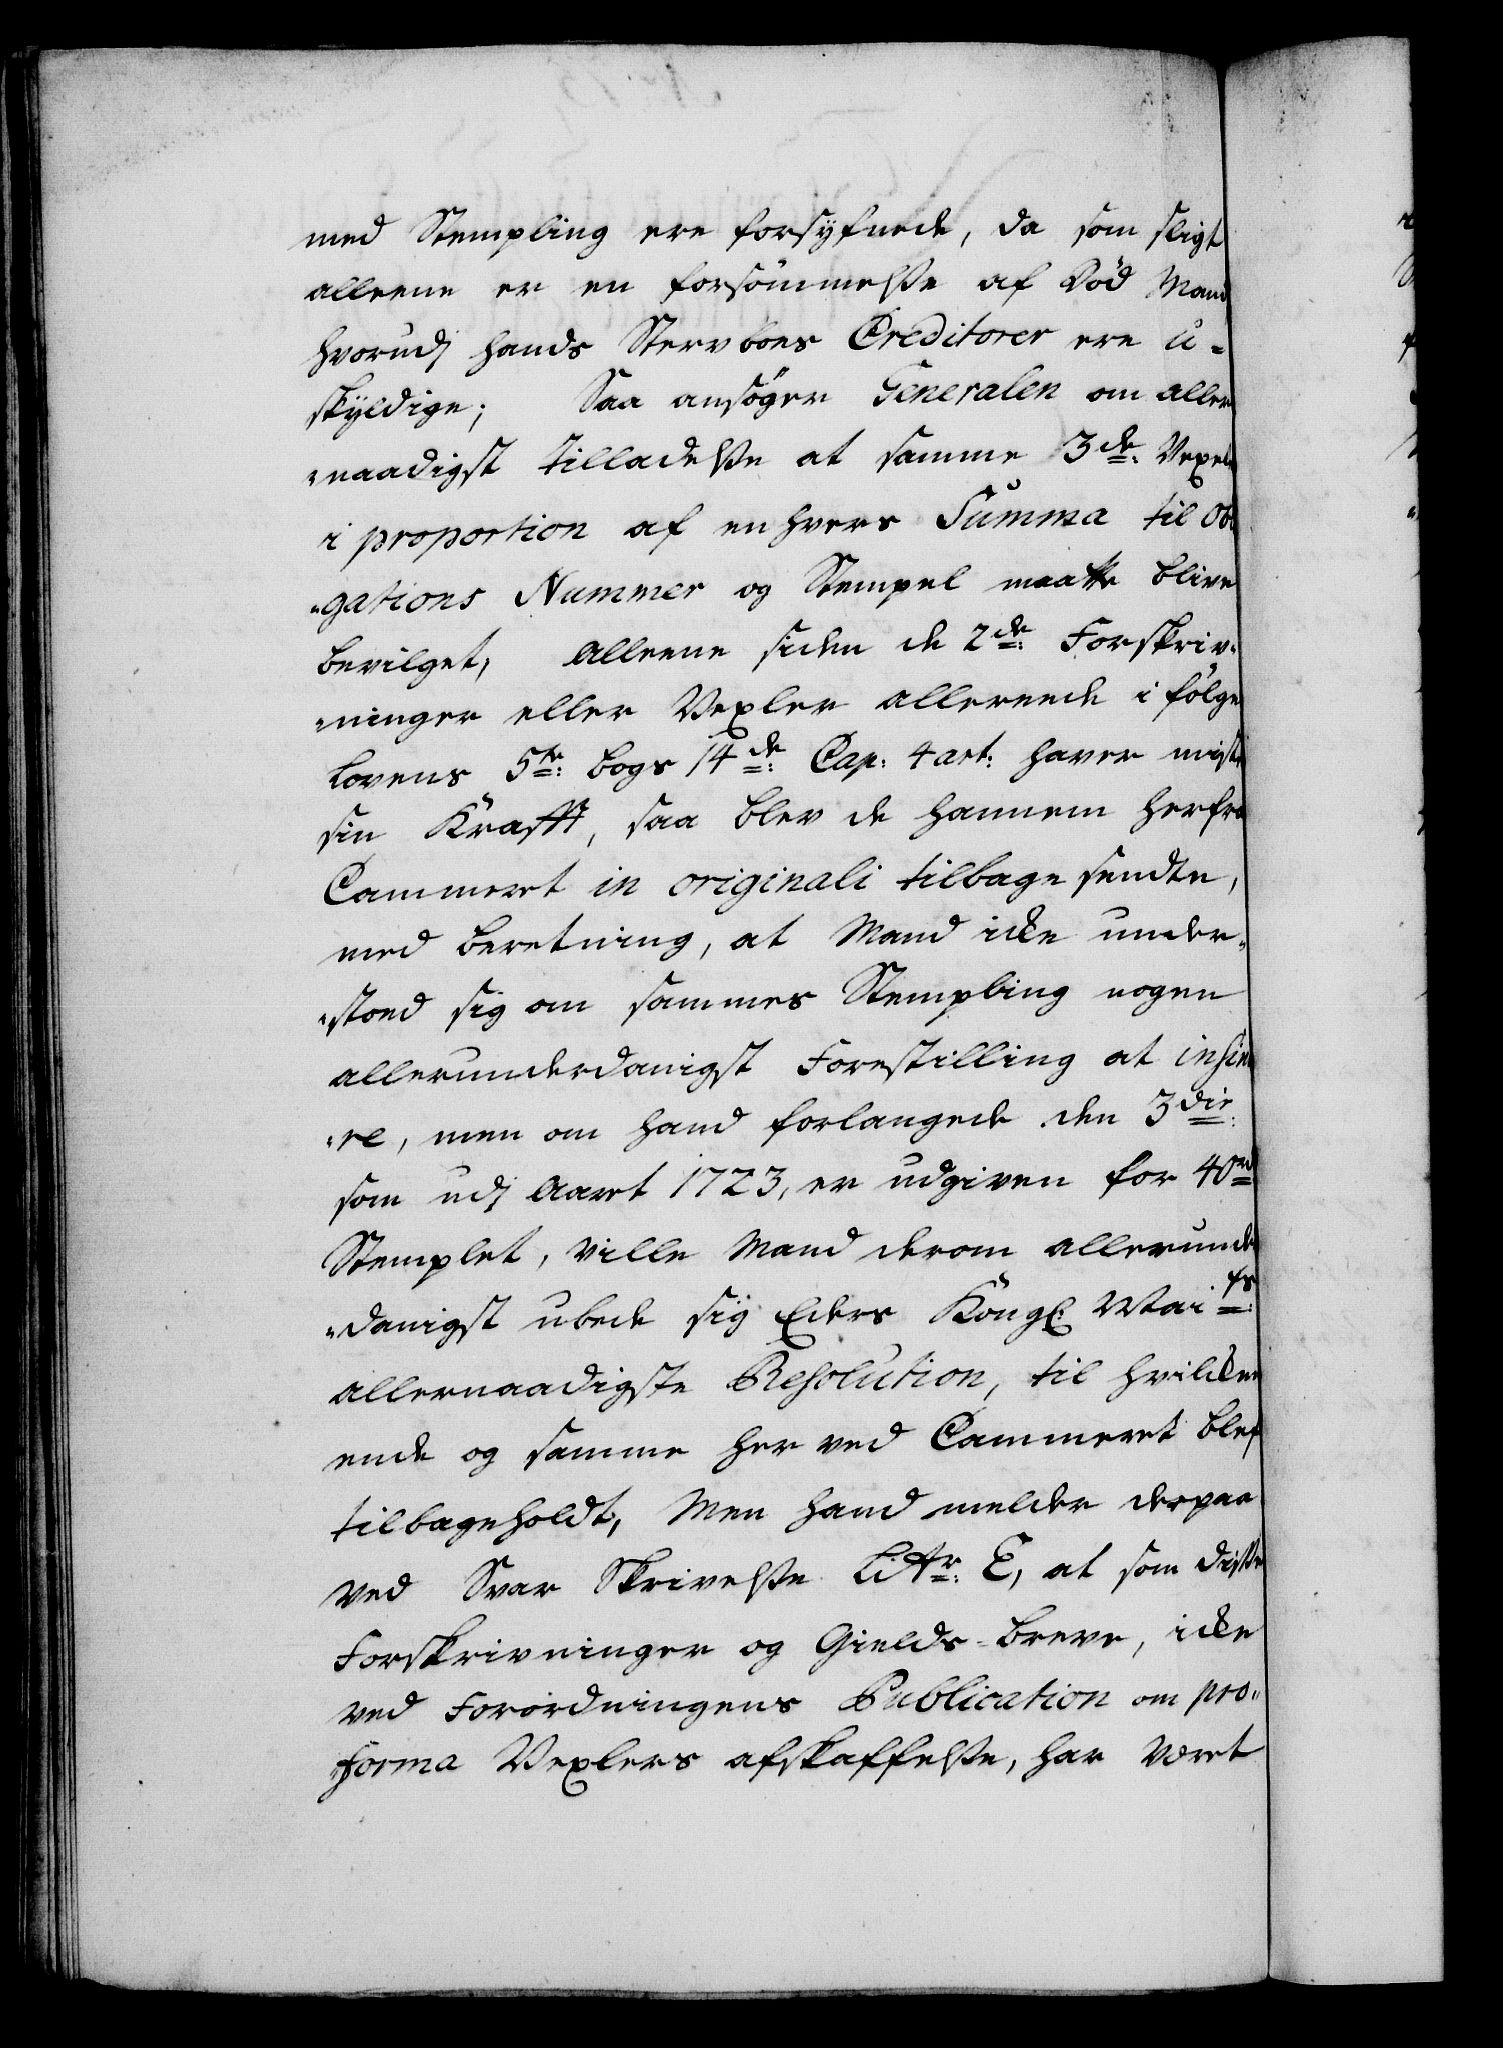 med Stempling ere forsÿfnede, da som sligt
alleene er en forsömmelse af död Mand
hvorudj hands Sterv boes Creditorer ere u-
skÿldige; Saa ansöger Generalen om aller
„naadigst tilladelse at samme 3de: Vexele
i proportion af en hvers Summa til Obli
„gations Nummer og Stempel maatte blive
bevilget, Alleene siden de 2de: Forskriv„
„ninger eller Vexler allereede i fölge
Lovens 5te: bogs 14de: Cap: 4 art: haver mist
sin Krafft, saa blev de hannem herfra
Cammeret in originali tilbage sendte,
med beretning, at Mand icke under„
„stoed sig om sammes Stempling nogen
allerunderdanigst Forestilling at insinu
„re, men om hand forlangede den 3die:
som udj Aaret 1723, er udgiven for 40rd
Stemplet, ville Mand derom allerunder
„danigst ubede sig Eders Kongl: Mai ts:
allernaadigste Resolution, til hvilcken
ende og samme her ved Cammeret blef
tilbageholdt, Men hand melder derpaa
ved Svar Skrivelse Littr: E, at som disse
Forskrivninger og Gields-breve, icke
ved Forordningens Publication om pro„
forma Vexlers afskaffelse, har været